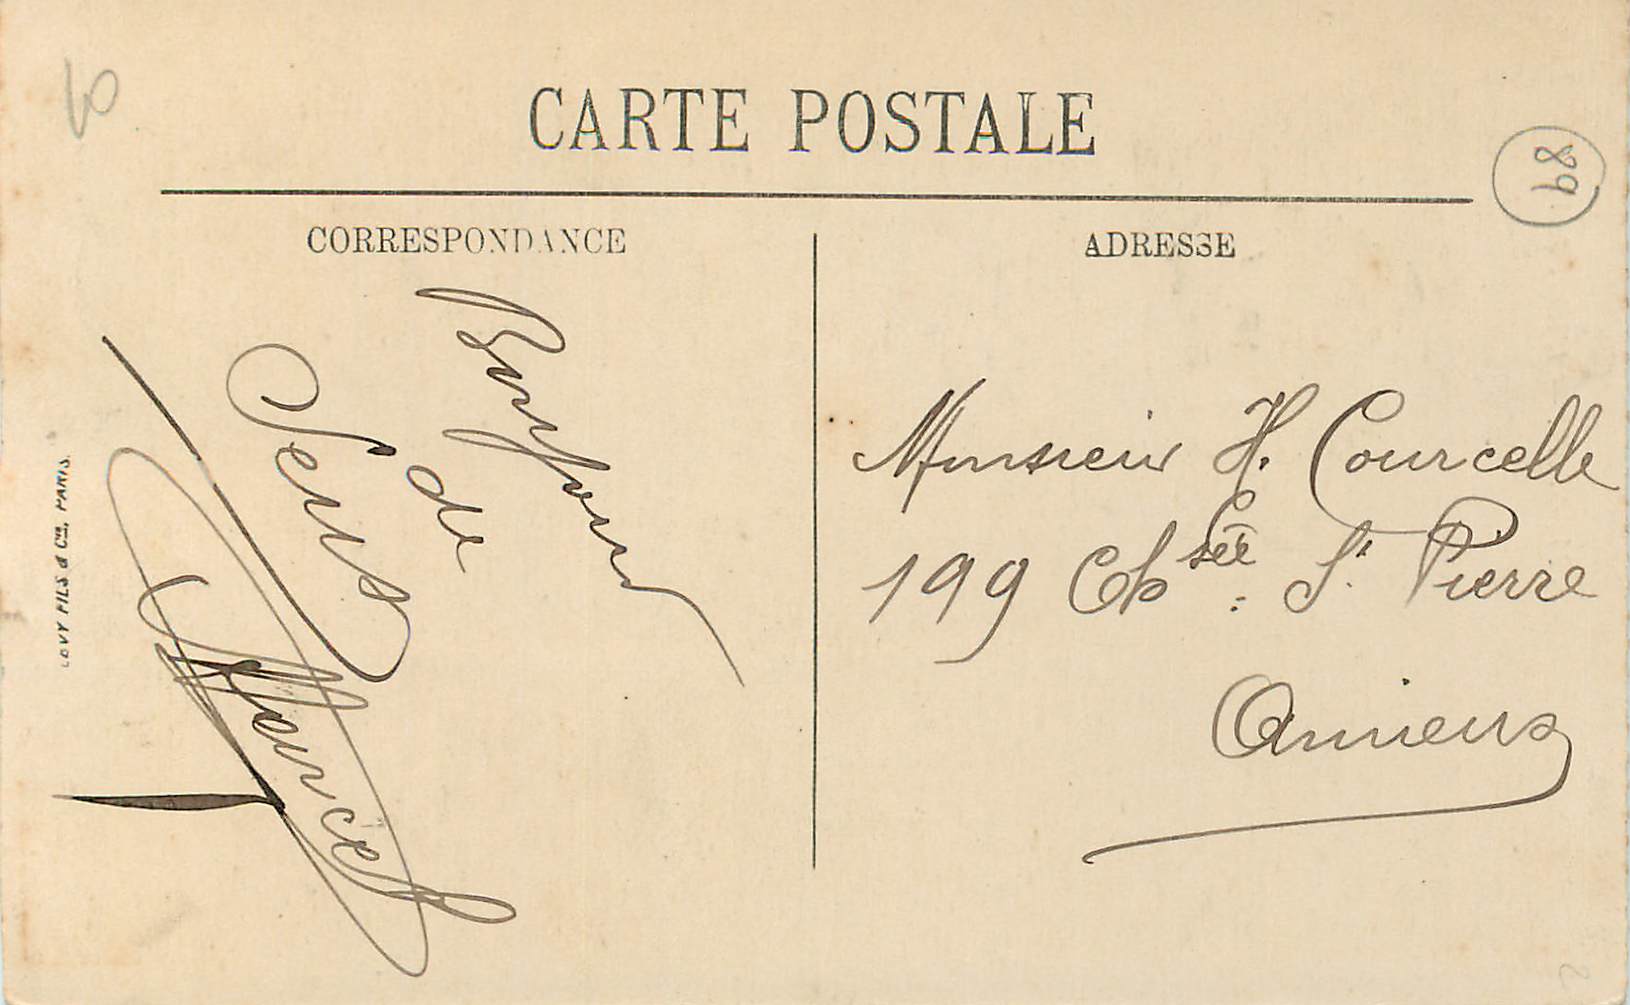 CARTE POSTALE
CORRESPONDANCE
Bonjour
de
Sens
Marcel
LEVY FILS & Cie, PARIS.
ADRESSE
Monsieur H. Courcelle
199 Chsée St Pierre
Amiens
89